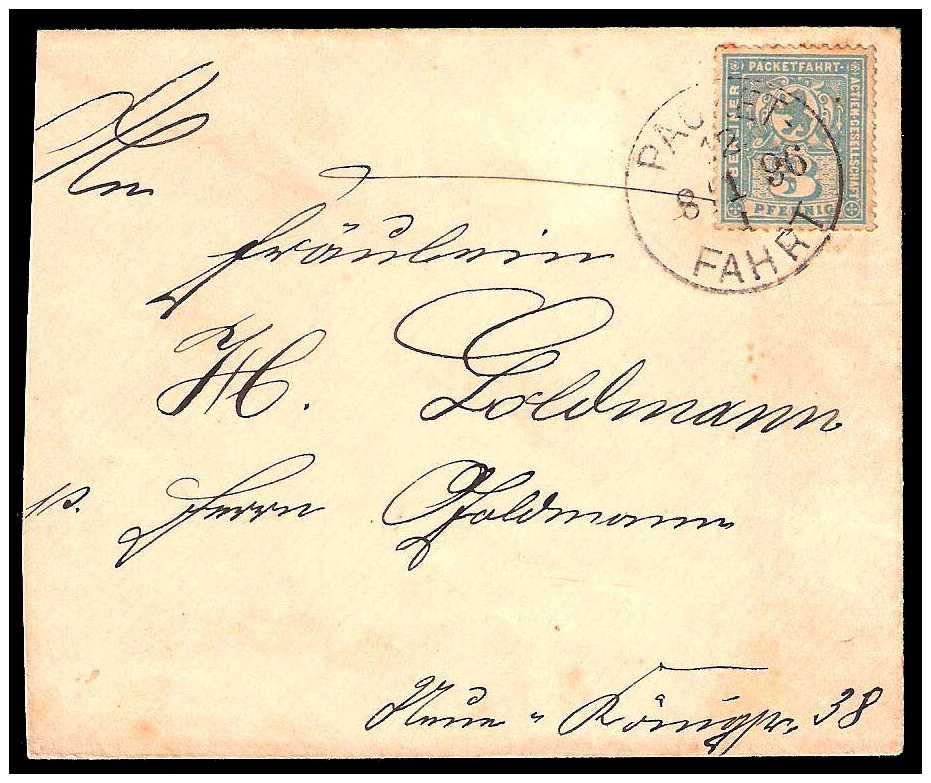 BERLINER PACKETFAHRT-ACTIEN-GESELLSCHAFT
3
PFENNIG
PACKET
8/1 96
FAHRT
An
Fräulein
H. Goldmann
p. Herrn Goldmann
Neue-Königstr. 38